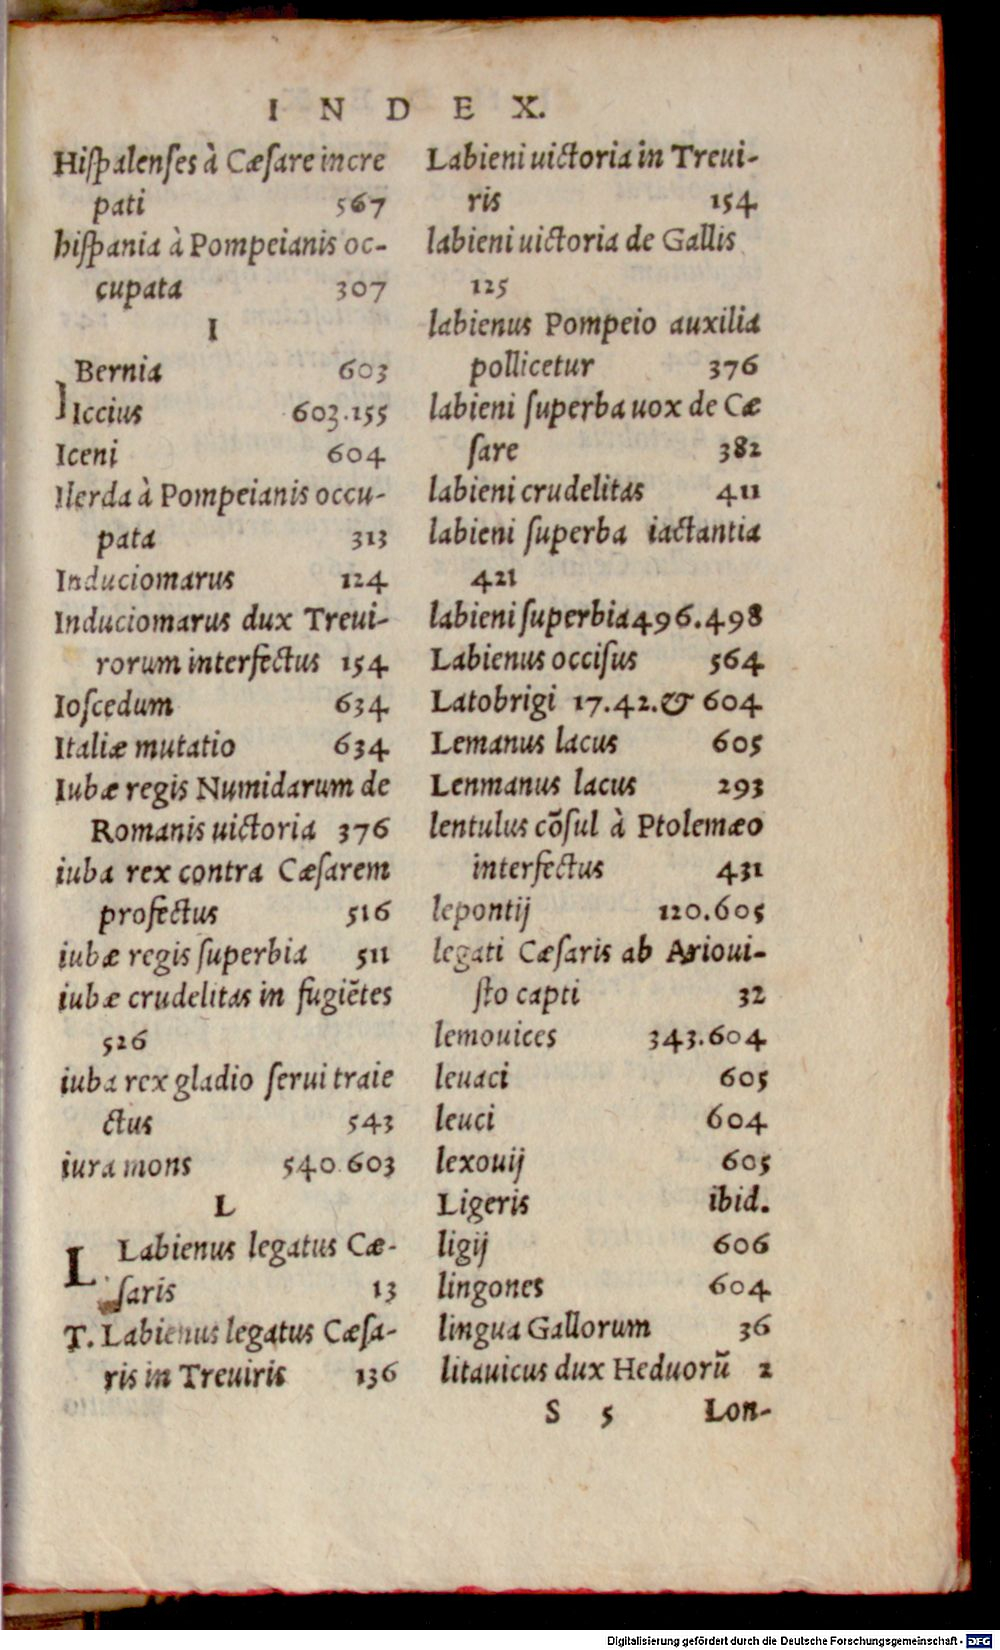 INDEX.
Hiſpalenſes à Cæſare incre
pati 567
hiſpania à Pompeianis oc-
cupata 307
I
Bernia 603
I Iccius 603.155
Iceni 604
Ilerda à Pompeianis occu-
pata 313
Induciomarus 124
Induciomarus dux Treui-
rorum interfectus 154
Ioſcedum 634
Italiæ mutatio 634
Iubæ regis Numidarum de
Romanis uictoria 376
iuba rex contra Cæſarem
profectus 516
iubæ regis ſuperbia 511
iubæ crudelitas in fugiẽtes
526
iuba rex gladio ſerui traie
ctus 543
iura mons 540.603
L
L Labienus legatus Cæ-
ſaris 13
T. Labienus legatus Cæſa-
ris in Treuiris 136
Labieni uictoria in Treui-
ris 154
labieni uictoria de Gallis
125
labienus Pompeio auxilia
pollicetur 376
labieni ſuperba uox de Cæ
ſare 382
labieni crudelitas 411
labieni ſuperba iactantia
421
labieni ſuperbia 496.498
Labienus occiſus 564
Latobrigi 17.42.& 604
Lemanus lacus 605
Lenmanus lacus 293
lentulus cõſul à Ptolemæo
interfectus 431
lepontij 120.605
legati Cæſaris ab Arioui-
ſto capti 32
lemouices 343.604
leuaci 605
leuci 604
lexouij 605
Ligeris ibid.
ligij 606
lingones 604
lingua Gallorum 36
litauicus dux Heduorũ 2
S 5 Lon-
Digitalisierung gefördert durch die Deutsche Forschungsgemeinschaft - DFG